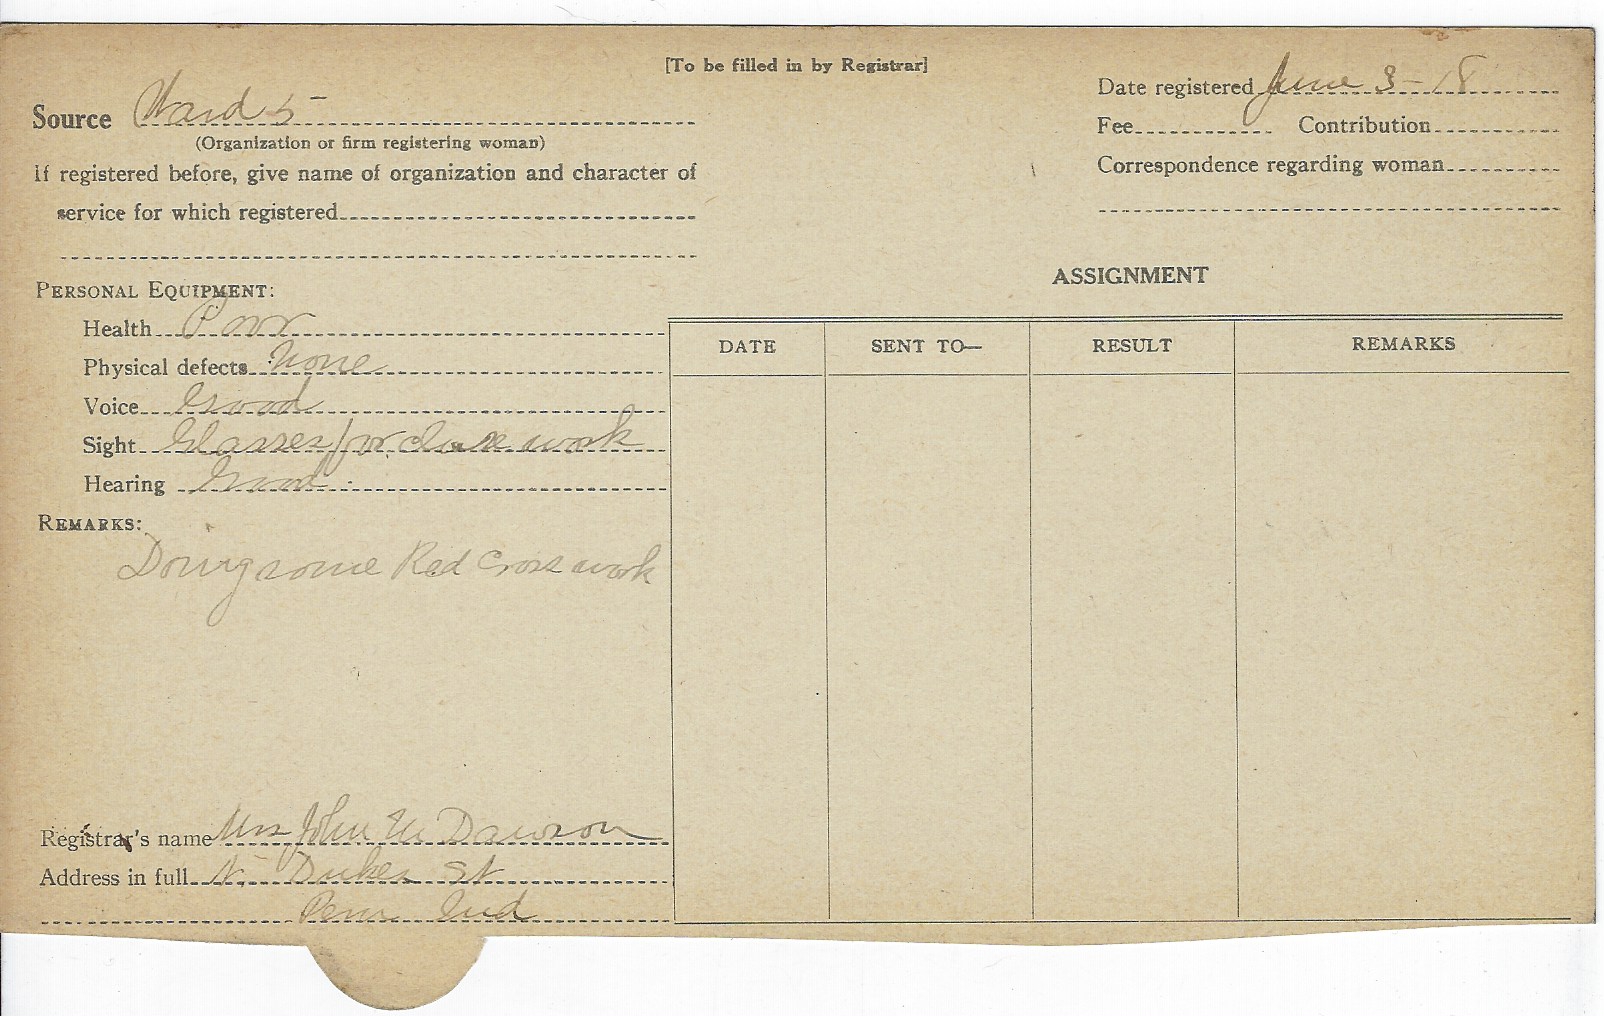 [To be filled in by Registrar]
Source Ward 5
(Organization or firm registering woman)
If registered before, give name of organization and character of
service for which registered
Date registered June 3-18
Fee Contribution
Correspondence regarding woman
PERSONAL EQUIPMENT:
Health Poor
Physical defects None
Voice Good
Sight Glasses for close work
Hearing Good
REMARKS:
Doing some Red Cross work
Registrar's name Mrs John M Dawson
Address in full N. Dukes St
Peru Ind
ASSIGNMENT
DATE SENT TO— RESULT REMARKS